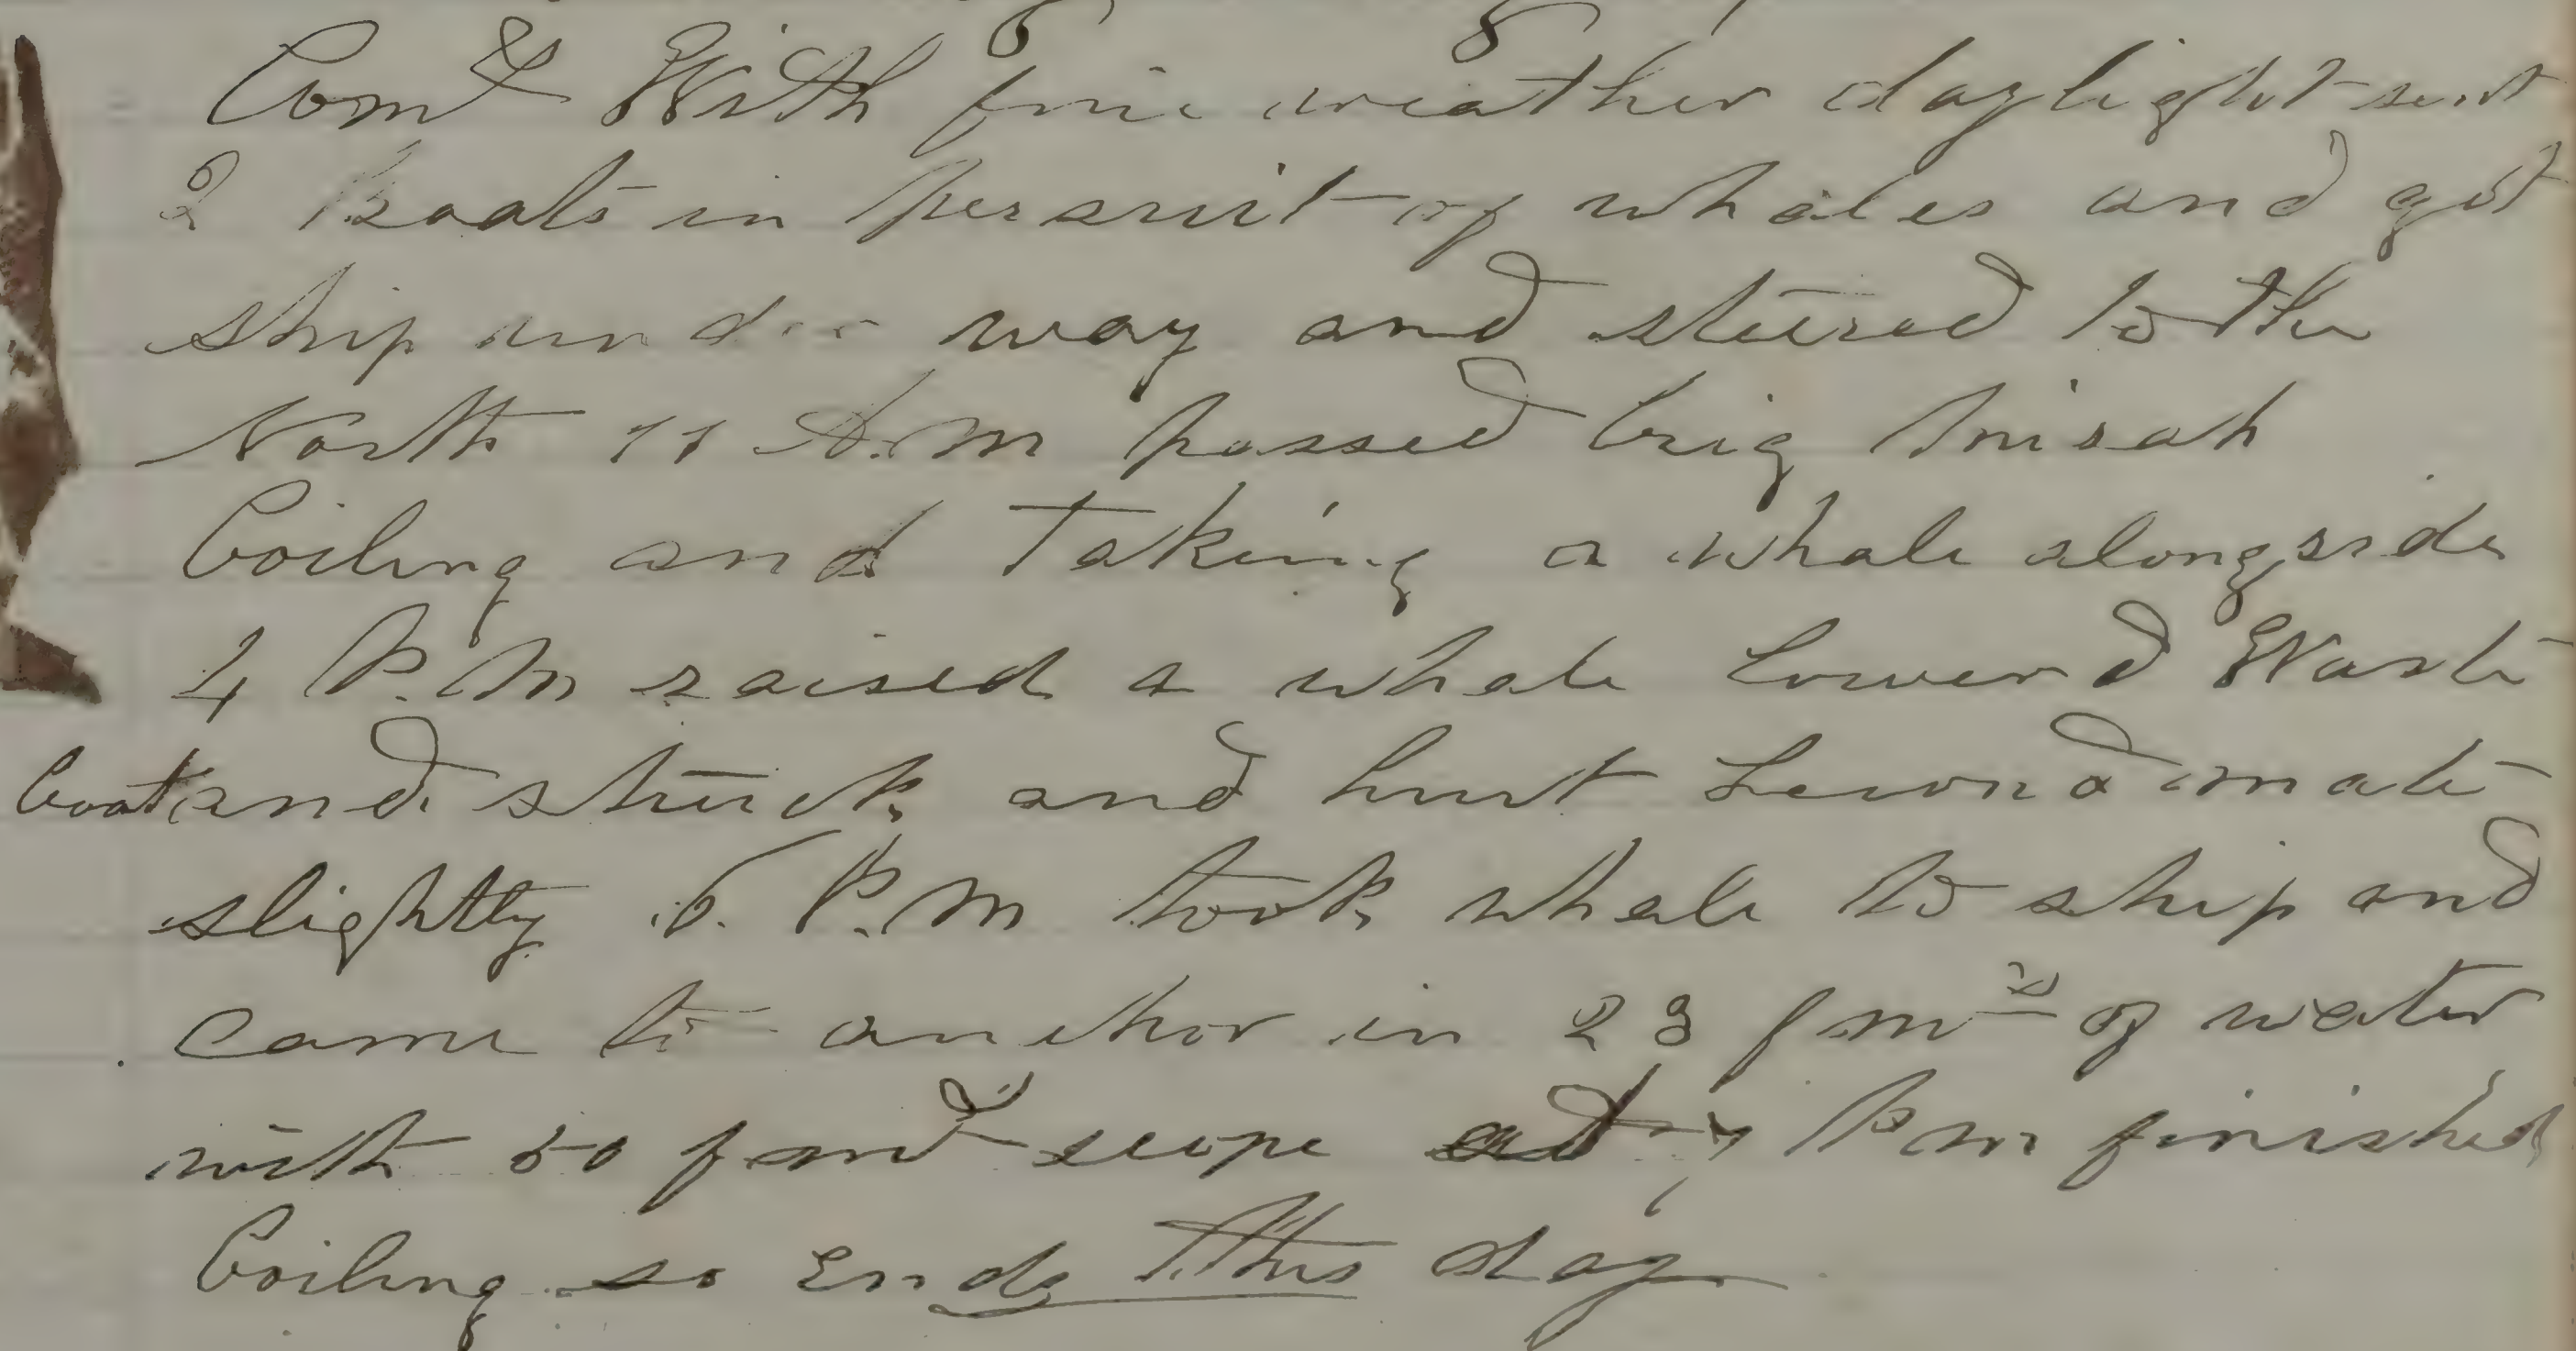 Comd With fine weather daylight sent
2 Boats in persuit of whales and got
ship under way and steered to the
North 11 A.M passed brig
boiling and taking a whale alongside
4 P.M raised a whale lowerd Waste
boat and struck and hurt second mate
slightly 6. P.M took whale to ship and
came to anchor in 23 fms of water
with 50 scope 7 P m finished
boiling so Ends this day